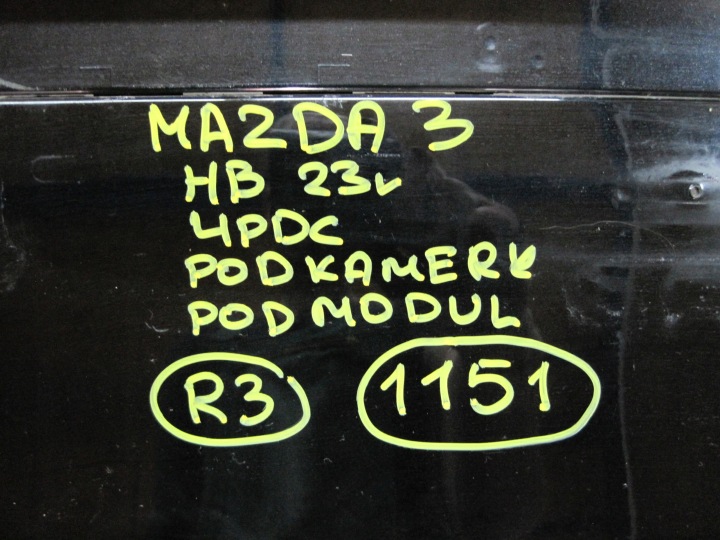 MAZDA 3
HB 23r
4PDC
POD KAMERE
POD MODUL
R3 1151